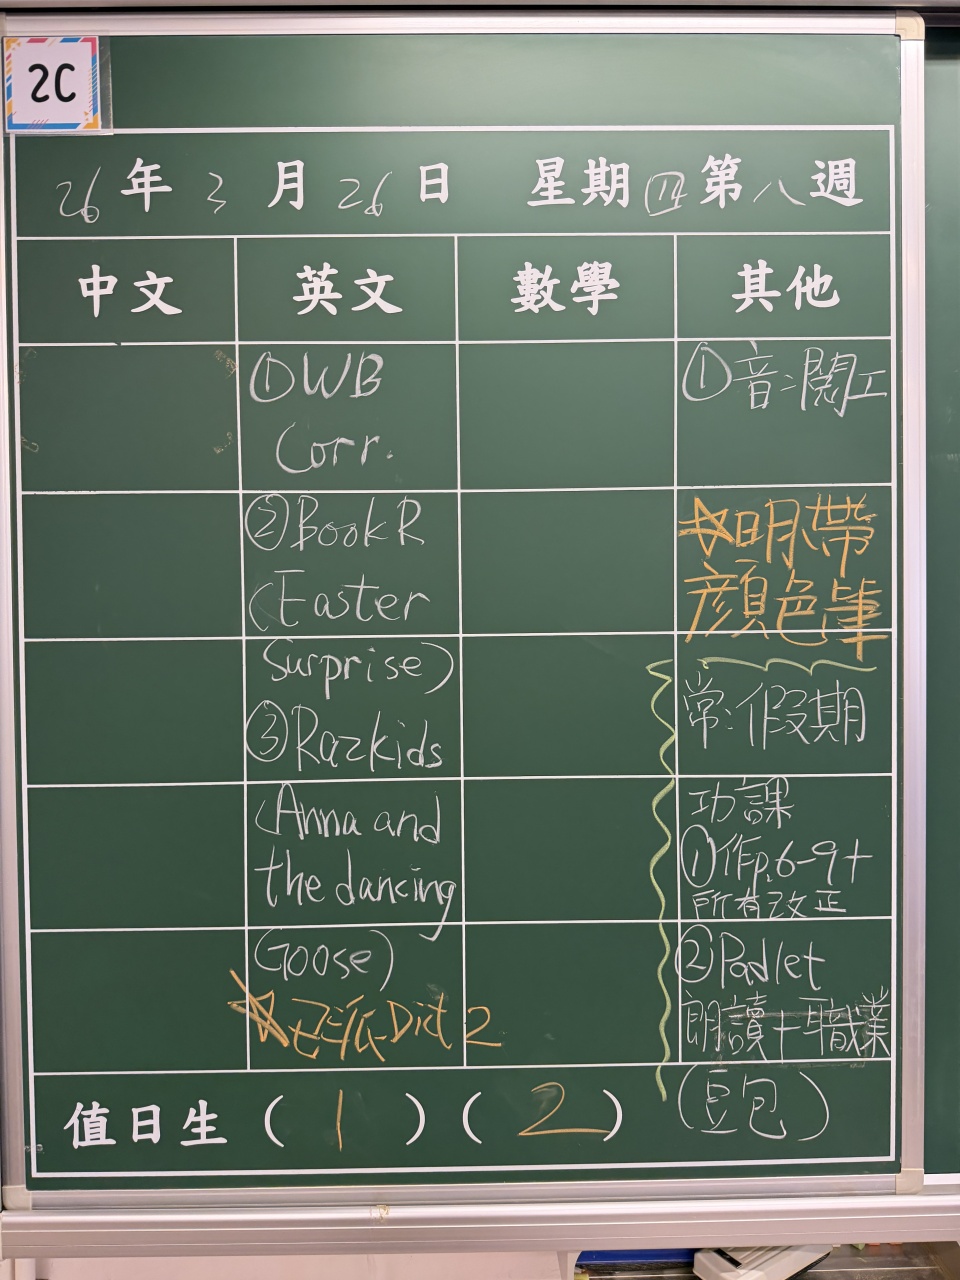 2C
26年3月26日 星期四第八週
中文 英文 數學 其他
①WB
Corr.
②Book R
(Easter
Surprise)
③Razkids
(Anna and
the dancing
Goose)
☆已派Dict 2
①音:閱工
☆明帶
顏色筆
常:假期
功課
①作p.6-9+
所有改正
②Padlet
朗讀+職業
(豆包)
值日生(1)(2)